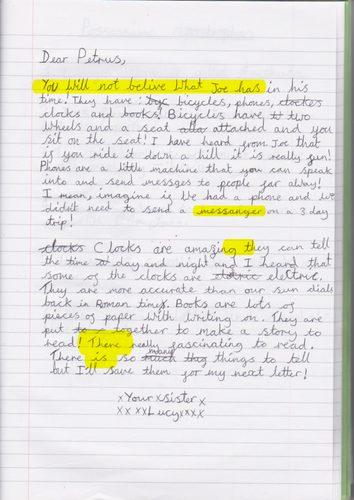 Dear Petrus,
You will not belive what Joe has in his
time! They have : bgc bicycles, phones, clockes
clocks and books! Bicycles have st two
wheels and a seat atta attached and you
sit on the seat! I have heard from Joe that
if you ride it down a hill it is really fun!
Phones are a little machine that you can speak
into and send messgs to people far away!
I mean, imagine if we had a phone and we
didn't need to send a messanger on a 3 day
trip!
clocks Clocks are amazing they can tell
the time at day and night and I heard that
some of the clocks are electric.
They are more accurate than our sun dials
back in Roman times. Books are lots of
pieces of paper with writing on. They are
put together to make a story to
read! There really fascinating to read.
There is so much many things to tell
but I'll save them for my next letter!
x Your x Sister x
x x x x Lucy x x x x